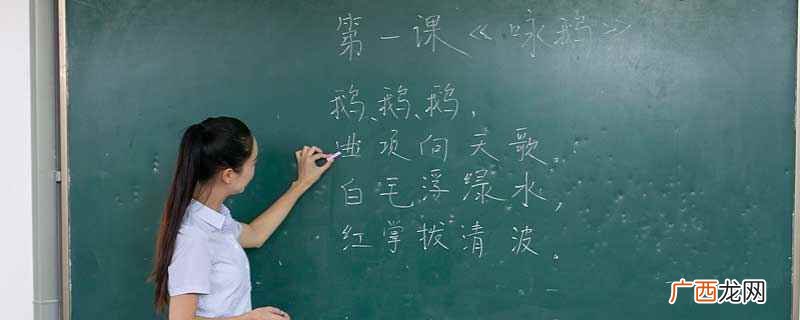 第一课《咏鹅》
鹅、鹅、鹅，
曲项向天歌。
白毛浮绿水，
红掌拨清波。
广西龙网